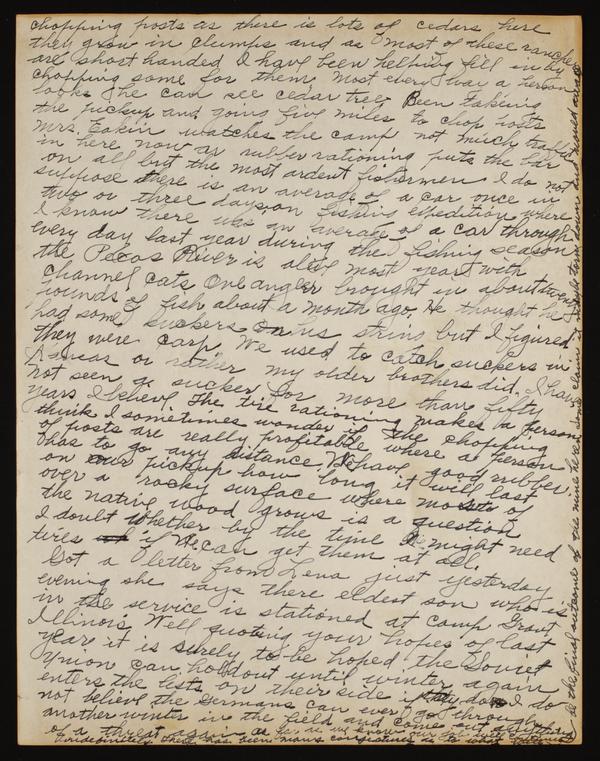 chopping posts as there is lots of cedars here
they grow in clumps and as most of these ranches
are short handed I have been helping fell in by
chopping some for them. Most every way a person
looks he can see cedar tree. Been taking
the pickup and going five miles to chop posts
Mrs. Eakin watches the camp not much traffic
in here now as rubber rationing puts the bar
on all but the most ardent fishermen I do not
suppose there is an average of a car once in
two or three days on fishing expedition where
I know there was an average of a car through
every day last year during the fishing season
the Pecos River is alive most years with
channel cats. One angler brought in about twenty
pounds of fish about a month ago. He thought he
had some suckers on his string but I figured
they were carp. We used to catch suckers in
Kansas or rather my older brothers did. I have
not seen a sucker for more than fifty
years I believe. The tire rationing makes a person
think I sometimes wonder if the chopping
of posts are really profitable where a person
has to go any distance. We have good rubber
on our pickup how long it will last
over a rocky surface where most of
the native wood grows is a question
I doubt whether by the time we might need
tires if we can get them at all.
Got a letter from Lena just yesterday
evening she says there eldest son who is
in the service is stationed at Camp Grant,
Illinois. Well quoting your hopes of last
year it is surely to be hoped the Soviet
Union can hold out until winter again
enters the lists on their side if they do I do
not believe the Germans can ever go through
another winter in the field and come out anything
of a threat again
there has been many conjectures as to what
as the final outcome of the mine here some claim it might be torn down and moved away